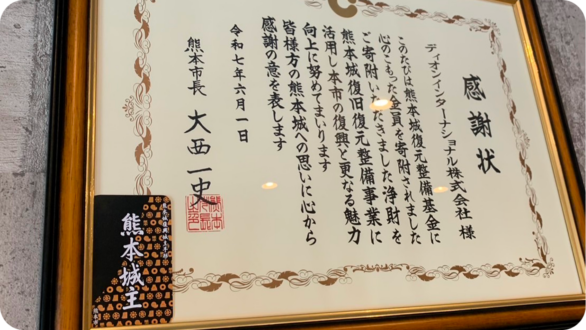 感謝状
ディオンインターナショナル株式会社 様
このたびは熊本城復元整備基金に
心のこもった金員を寄附されました
ご寄附いただきました浄財を
熊本城復旧復元整備事業に
活用し本市の復興と更なる魅力
向上に努めてまいります
皆様方の熊本城への思いに心から
感謝の意を表します
令和七年六月一日
熊本市長 大西一史
熊本城主